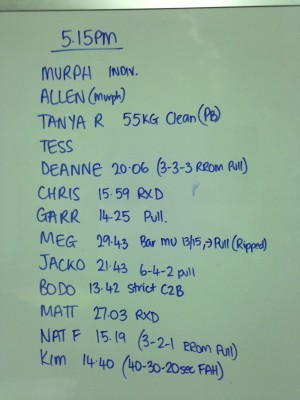 5.15pm
MURPH INDIV.
ALLEN (Murph)
TANYA R 55KG Clean (PB)
TESS
DEANNE 20.06 (3-3-3 RROM Pull)
CHRIS 15.59 RXD
GARR 14.25 Pull.
MEG 29.43 Bar MU 13/15, → Pull (Ripped)
JACKO 21.43 6-4-2 pull
BODO 13.42 strict C2B
MATT 27.03 RXD
NAT F 15.19 (3-2-1 RROM Pull)
Kim 14.40 (40-30-20sec FAH)